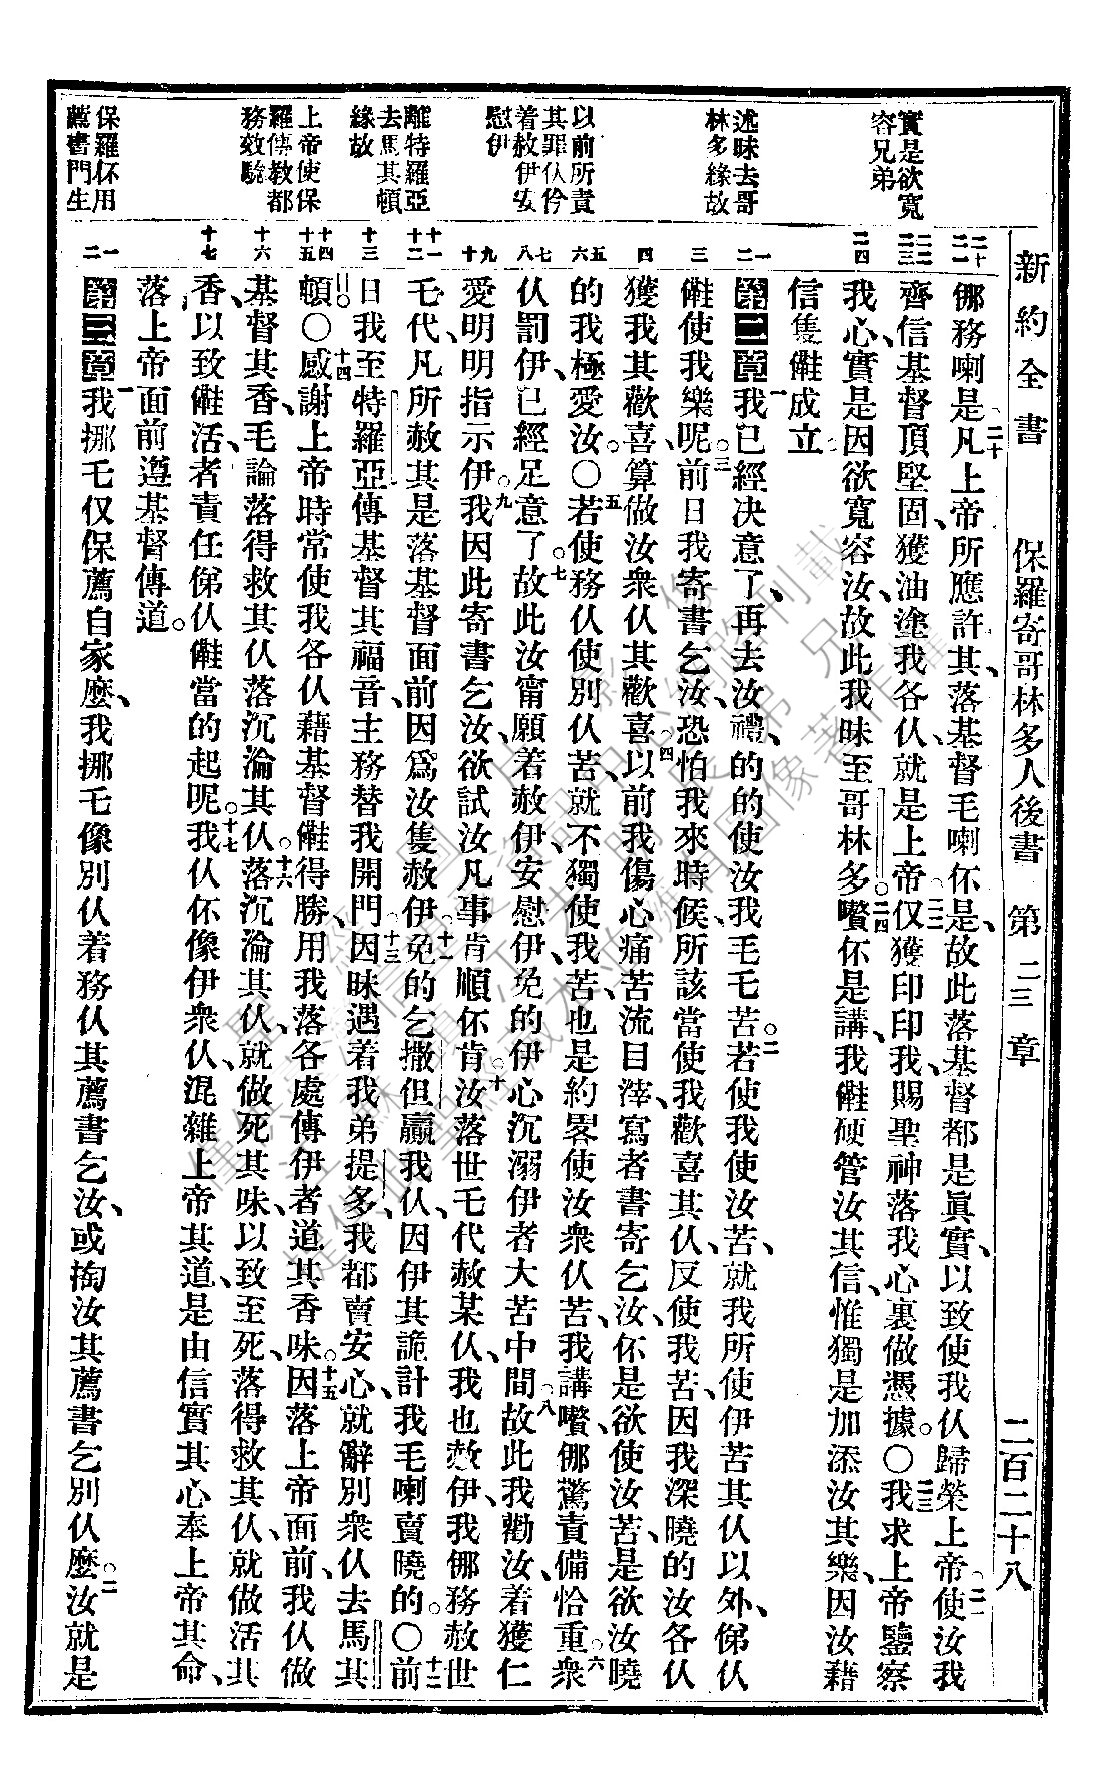 新約全書　保羅寄哥林多人後書　第二三章　二百二十八
實是欲寬
容兄弟
述昧去哥
林多緣故
以前所責
其罪仈仱
着赦伊安
慰伊
離特羅亞
去馬其頓
緣故
上帝使保
羅傳教都
務效驗
保羅伓用
薦書門生
二十
二一
二二
二三
二四
一
二
三
四
五
六
七
八
九
十
十一
十二
十三
十四
十五
十六
十七
一
二
㑚務喇是凡上帝所應許其落基督毛喇伓是、故此落基督都是眞實、以致使我仈歸榮上帝。使汝我
齊信基督頂堅固、獲油塗我各仈、就是上帝。仅獲印印我、賜聖神落我心裏做憑據。○我求上帝鑒察
我心、實是因欲寬容汝、故此我昧至哥林多。嚽伓是講、我硬管汝其信、惟獨是加添汝其樂、因汝藉
信隻成立
第二章　我已經决意了、再去汝禮、的的使汝我毛毛苦。若使我使汝苦、就我所使伊苦其仈以外、俤仈
使我樂呢。前日我寄書乞汝、恐怕我來時候、所該當使我歡喜其仈、反使我苦、因我深曉的汝各仈
獲我其歡喜、算做汝衆仈其歡喜。以前我傷心痛苦流目滓、寫者書寄乞汝、伓是欲使汝苦、是欲汝曉
的我極愛汝。○若使務仈使別仈苦、就不獨使我苦、也是約畧使汝衆仈苦、我講嚽、㑚驚責備恰重。衆
仈罰伊、已經足意了。故此汝甯願着赦伊、安慰伊、免的伊心沉溺伊者大苦中間。故此我勸汝、着獲仁
愛、明明指示伊。我因此寄書乞汝、欲試汝凡事肯順伓肯。汝落世乇代赦某仈、我也赦伊、我㑚務赦世
乇代、凡所赦其、是落基督面前、因爲汝隻赦伊。免的乞撒但贏我仈、因伊其詭計、我毛喇賣曉的。○前
日我至特羅亞、傳基督其福音、主務替我開門。因昧遇着我弟提多、我都賣安心、就辭別衆仈、去馬其
頓。○感謝上帝時常使我各仈藉基督得勝、用我落各處傳伊者道其香味。因落上帝面前、我仈做
基督其香、毛論落得救其仈、落沉淪其仈。落沉淪其仈、就做死其味、以致至死、落得救其仈、就做活其
香、以致活、者責任俤仈當的起呢。我仈伓像伊衆仈、混雜上帝其道、是由信實其心、奉上帝其命、
落上帝面前、遵基督傳道。
第三章　我挪乇仅保薦自家麽、我挪乇像別仈、着務仈其薦書乞汝、或掏汝其薦書乞別仈麽。汝就是